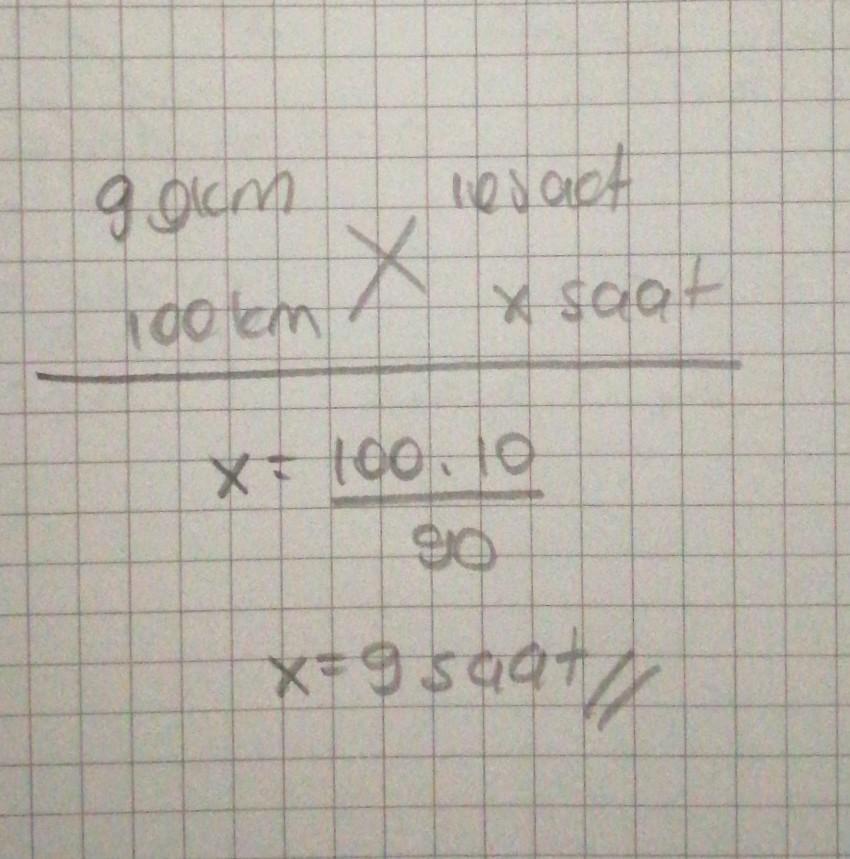 90km 10saat
100km X x saat
x = 100.10
90
x = 9 saat //